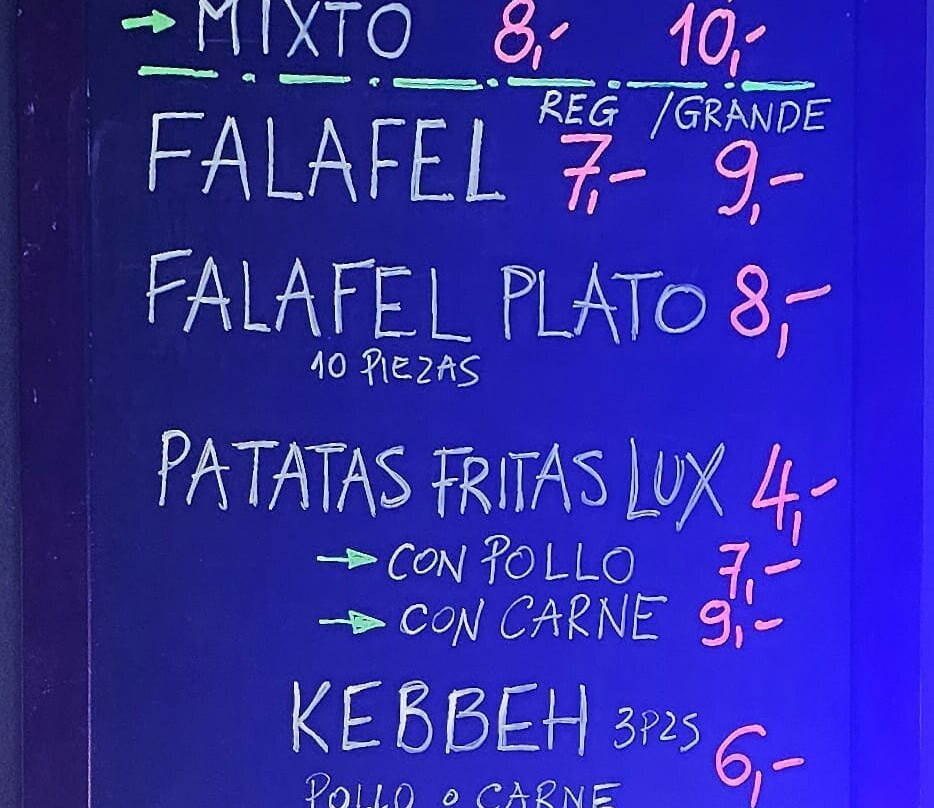 → MIXTO 8,- 10,-
REG / GRANDE
FALAFEL 7,- 9,-
FALAFEL PLATO 8,-
10 PIEZAS
PATATAS FRITAS LUX 4,-
→ CON POLLO 7,-
→ CON CARNE 9,-
KEBBEH 3PZS 6,-
POLLO O CARNE